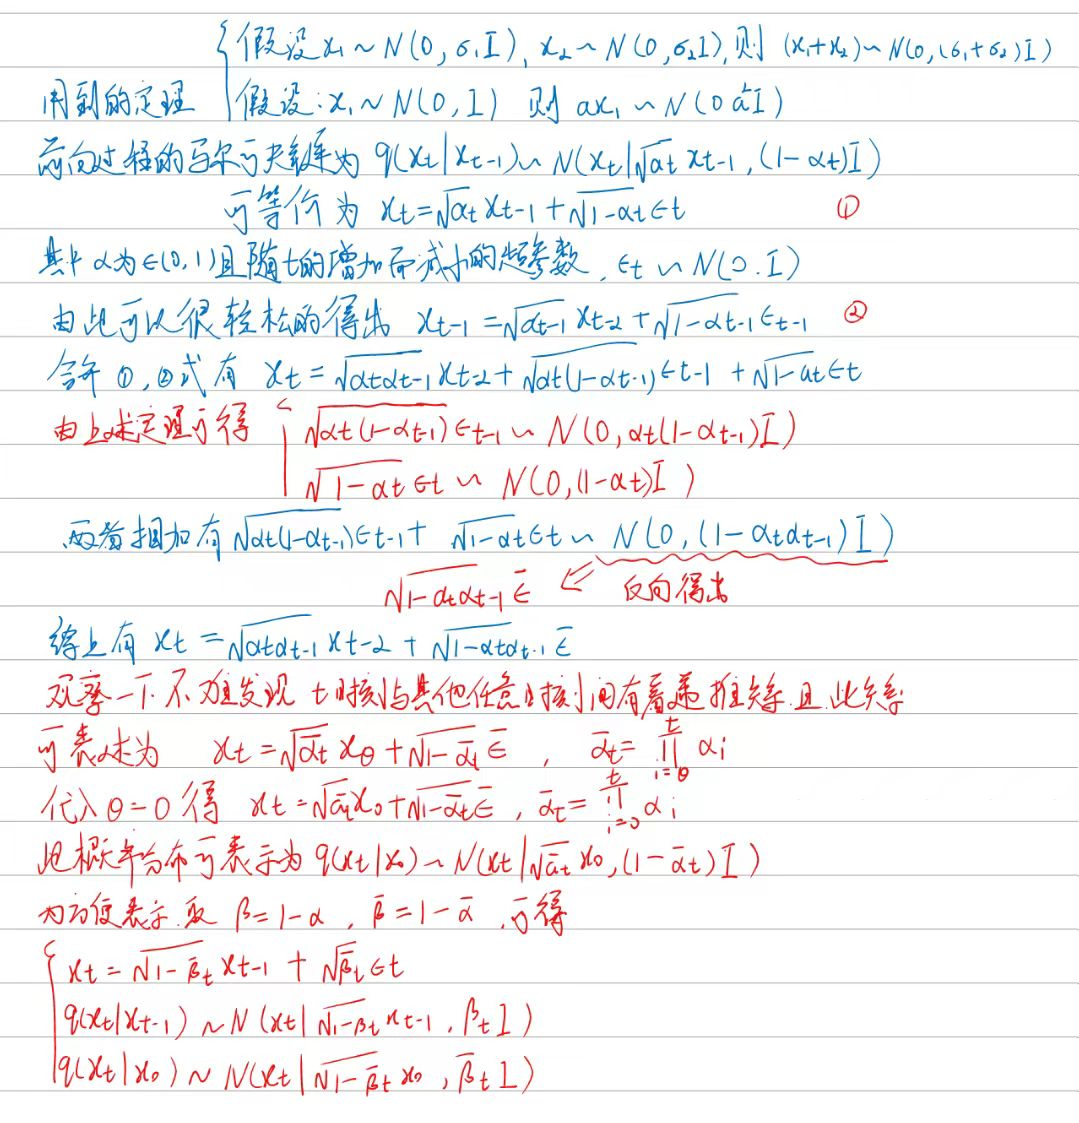 假设x₁~N(0,σ₁I),x₂~N(0,σ₂I),则 (x₁+x₂)~N(0,(σ₁+σ₂)I)
用到的定理 假设:x₁~N(0,I) 则 ax₁~N(0 a²I)
前向过程的马尔可夫链为 q(xt|xt-1)~N(xt|√αt xt-1,(1-αt)I)
可等价为 xt=√αt xt-1+√1-αt ϵt ①
其中α为∈(0,1)且随t的增加而减小的超参数,ϵt~N(0.I)
由此可以很轻松的得出 xt-1=√αt-1 xt-2+√1-αt-1 ϵt-1 ②
合并①,②式有 xt=√αtαt-1 xt-2+√αt(1-αt-1) ϵt-1+√1-αt ϵt
由上述定理可得 √αt(1-αt-1) ϵt-1~N(0,αt(1-αt-1)I)
√1-αt ϵt~N(0,(1-αt)I)
两者相加有√αt(1-αt-1) ϵt-1+√1-αt ϵt~N(0,(1-αtαt-1)I)
√1-αtαt-1 ϵ̄ ⇐ 反向得出
综上有 xt=√αtαt-1 xt-2+√1-αtαt-1 ϵ̄
观察一下不难发现 t时刻与其他任意时刻间有着递推关系且此关系
可表述为 xt=√ᾱt xθ+√1-ᾱt ϵ̄,ᾱt=∏ᵗi=θ αi
代入θ=0得 xt=√ᾱt x₀+√1-ᾱt ϵ̄,ᾱt=∏ᵗi=0 αi
此概率分布可表示为 q(xt|x₀)~N(xt|√ᾱt x₀,(1-ᾱt)I)
为方便表示.取 β=1-α,β̄=1-ᾱ,可得
xt=√1-β̄t xt-1+√β̄t ϵt
q(xt|xt-1)~N(xt|√1-βt xt-1,βtI)
q(xt|x₀)~N(xt|√1-β̄t x₀,β̄tI)